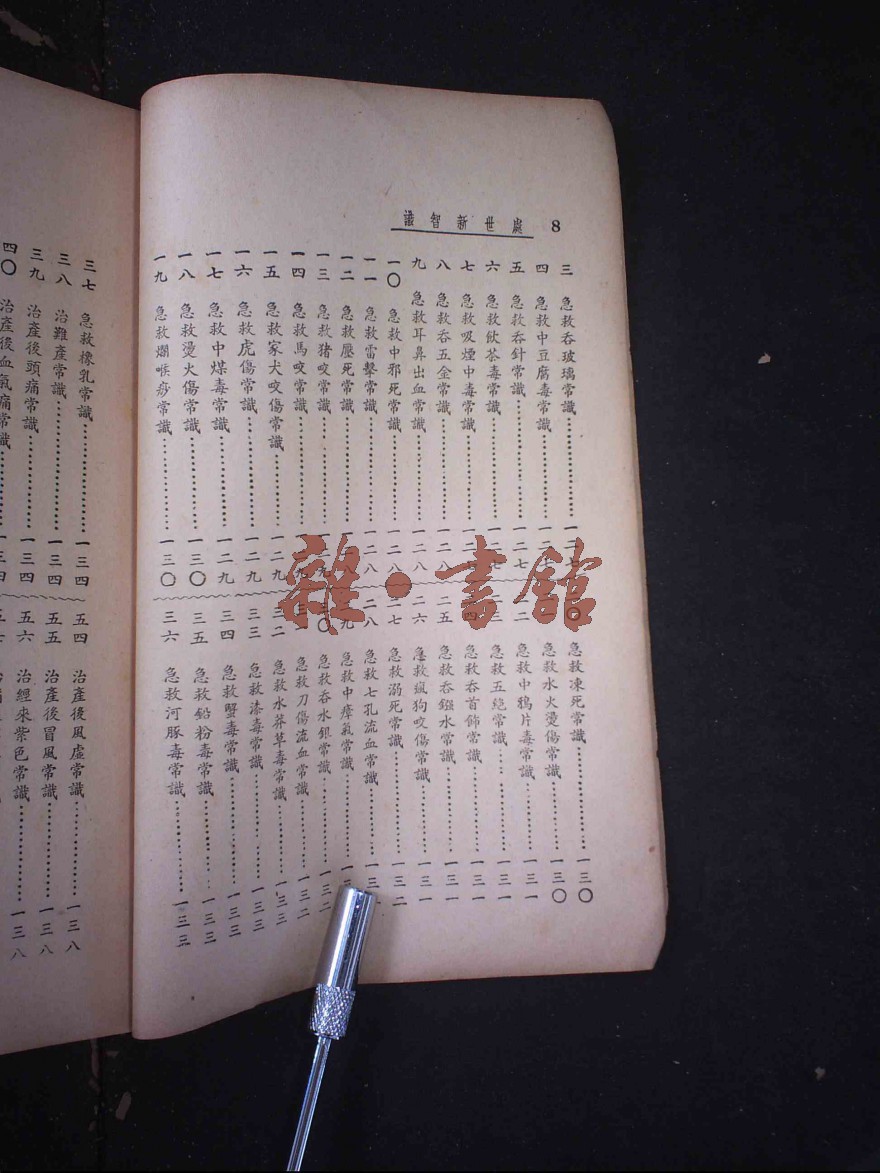 8 處世新智識
三 急救吞玻璃常識
四 急救中豆腐毒常識
五 急救吞針常識 一二七
六 急救飲茶毒常識
七 急救吸煙中毒常識
八 急救吞五金常識 一二八
九 急救耳鼻出血常識 一二八
一〇 急救中邪死常識 一二八
一一 急救雷擊常識 一二八
一二 急救壓死常識
一三 急救猪咬常識
一四 急救馬咬常識
一五 急救家犬咬傷常識 一二九
一六 急救虎傷常識 一二九
一七 急救中煤毒常識 一二九
一八 急救燙火傷常識 一三〇
一九 急救爛喉痧常識 一三〇
急救凍死常識 一三〇
急救水火燙傷常識 一三〇
急救中鴉片毒常識 一三一
急救五絕常識 一三一
急救吞首飾常識 一三一
二五 急救吞鏹水常識 一三一
二六 急救瘋狗咬傷常識 一三一
二七 急救溺死常識 一三二
二八 急救七孔流血常識
急救中瘴氣常識
急救吞水銀常識 一三二
急救刀傷流血常識 一三二
三二 急救水莽草毒常識 一三三
三三 急救漆毒常識 一三三
三四 急救蟹毒常識 一三三
三五 急救鉛粉毒常識 一三三
三六 急救河豚毒常識 一三三
三七 急救橡乳常識 一三四
三八 治難產常識 一三四
三九 治產後頭痛常識 一三四
四〇 治產後血氣痛常識 一三四
五四 治產後風虛常識 一三八
五五 治產後冒風常識 一三八
五六 治經來紫色常識 一三八
雜·書館